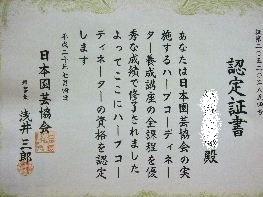 認定証書
殿
あなたは日本園芸協会の実
施するハーブコーディネー
ター養成講座の全課程を優
秀な成績で修了されました
よってここにハーブコー
ディネーターの資格を認定
します
日本園芸協会
理事長 浅井三郎